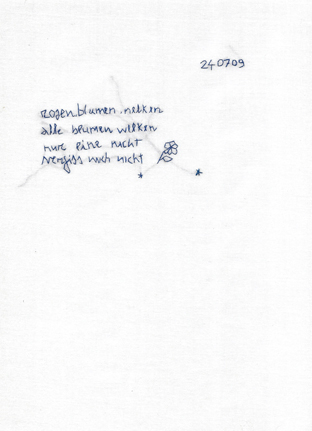 240709
rosen blumen nelken
alle blumen welken
nur eine nicht
vergiss mich nicht
* *